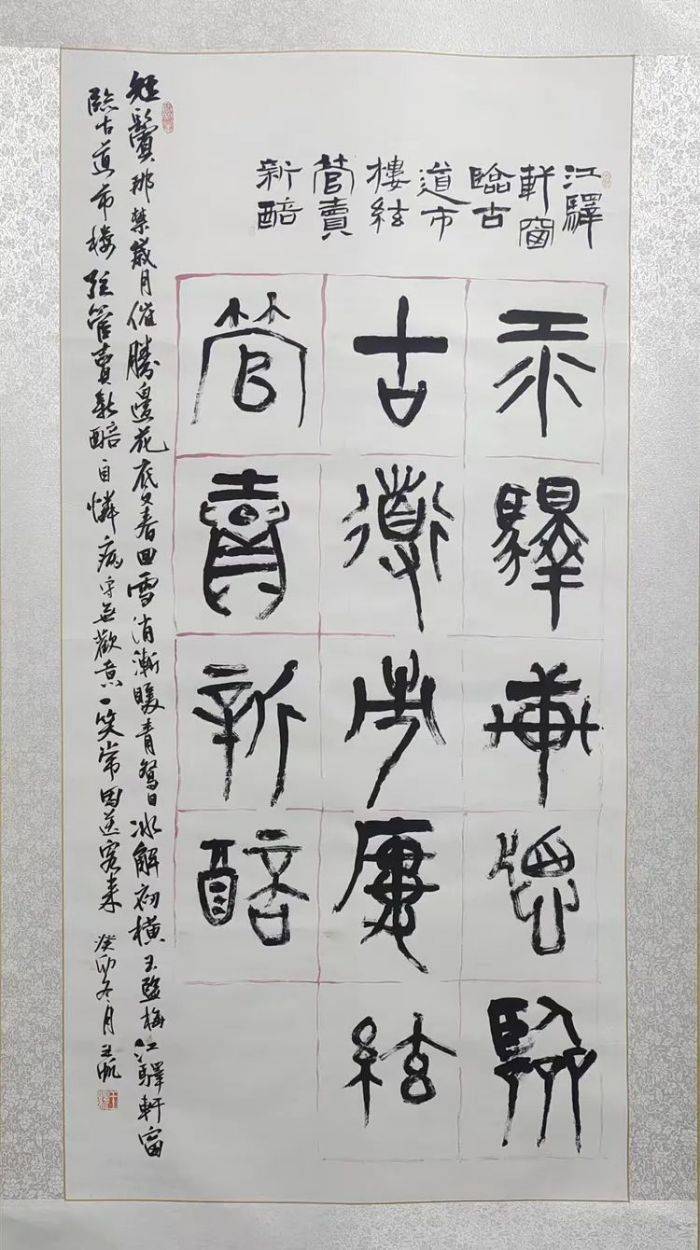 江驛
軒窗
臨古
道市
樓絃
管賣
新醅
江驛軒窗臨
古道市樓絃
管賣新醅
短鬢那禁歲月催勝邊花底又春回雪消漸暖青鴛日冰解初橫玉監梅江驛軒窗
臨古道市樓弦管賣新醅自憐病守無歡意一笑常因送客來 癸卯冬月 王帆